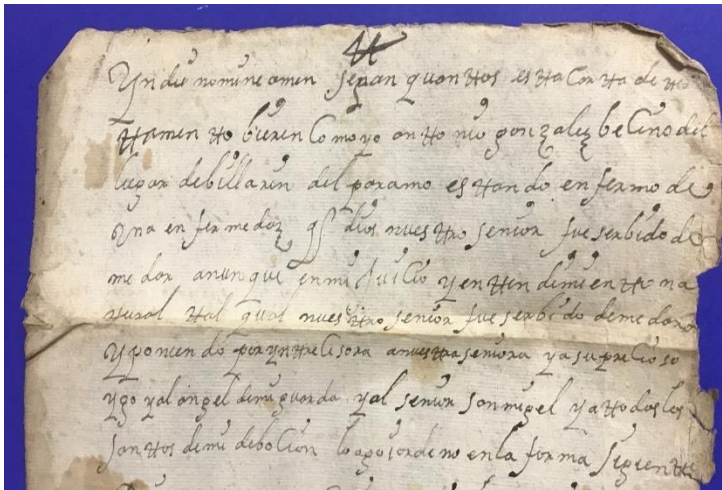 Yn dei nomine amen sepan quantos esta carta de tes
tamento bieren como yo antonio gonzalez beçino del
lugar de billarin del paramo estando enfermo de
una enfermedaz q dios nuestro senior fue serbido de
me dar aunque en mi juiçio y entendimiento na
tural tal qual nuestro senior fue serbido de me dar
y poniendo por yntreçisora a nuestra seniora y a su preçioso
ygo y al angel de mi guarda y al senior san migel y a todos los
santos de mi deboçion lo ago i ordeno en la forma sigiente